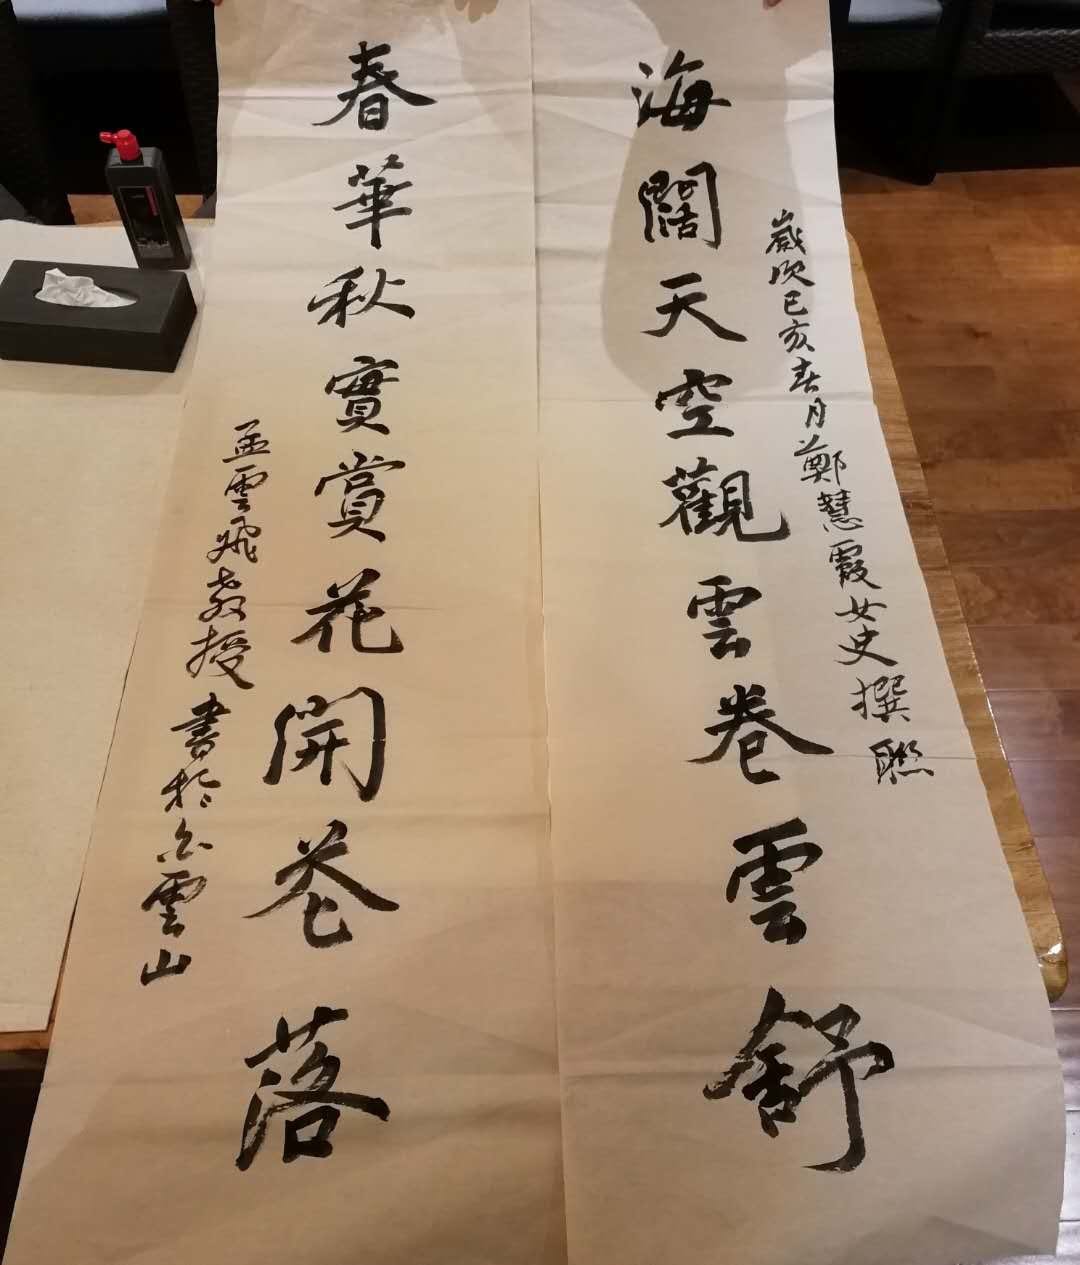 海闊天空觀雲卷雲舒
歲次己亥春月鄭慧霞女史撰聯
春華秋實賞花開花落
孟雲飛教授書於白雲山